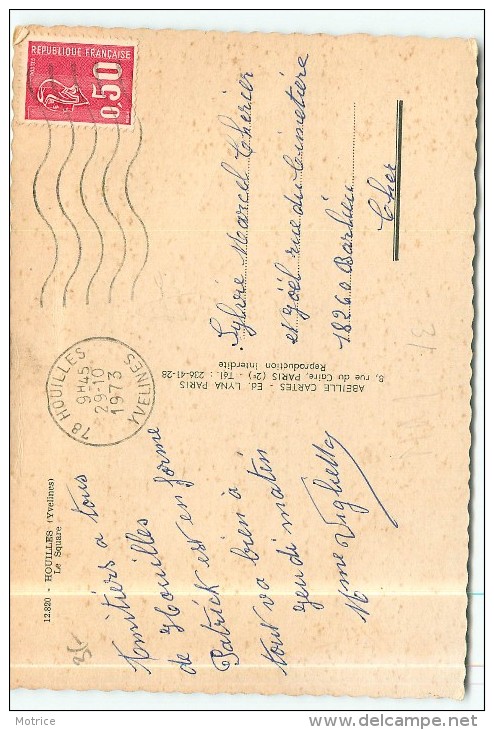 12.820 - HOUILLES (Yvelines)
Le Square
Amitiers a tous
de Houilles
Patrick est en forme
tout va bien à
jeudi matin
Mme Vighetto
ABEILLE CARTES - Ed. LYNA PARIS
8, rue du Caire, PARIS (2e) - Tél. : 236-41-28
Reproduction interdite
78 HOUILLES
9H45
29-10
1973
YVELINES
RÉPUBLIQUE FRANÇAISE
POSTES
0,50
Sylvie Marcel Cherier
et Joël rue du Cimetière
18260 Barlieu
Cher
Motrice
www.delcampe.net